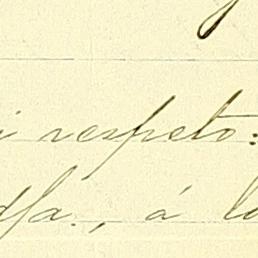 i respeto:
dfa., á lo